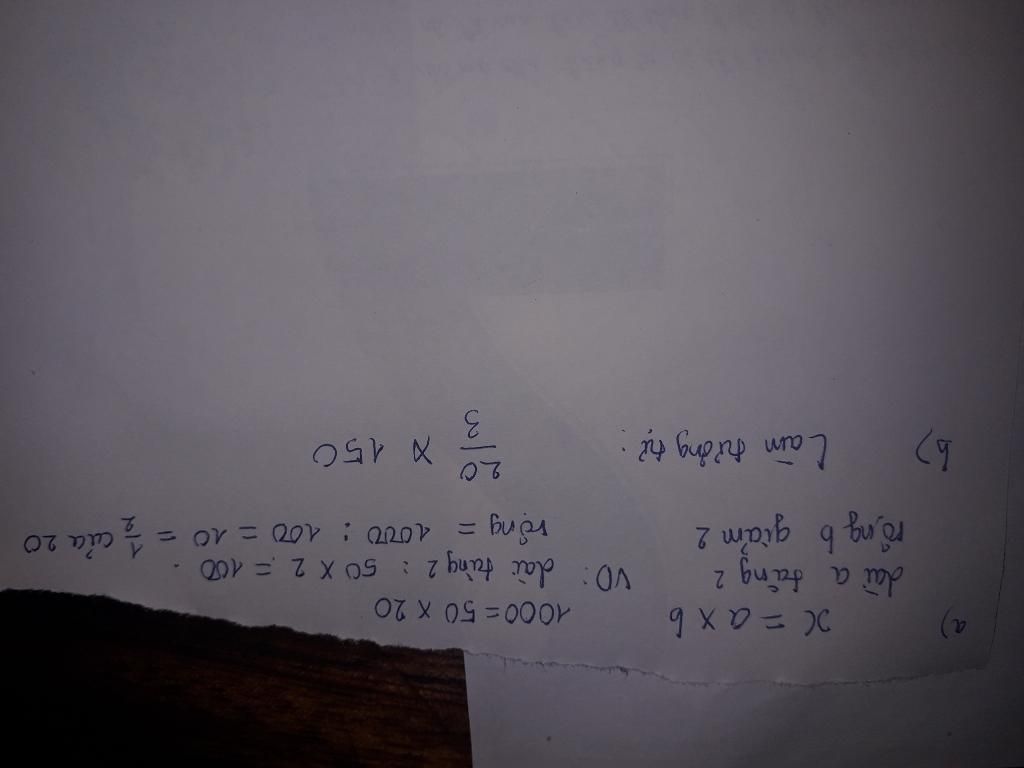 a) x = a x b 1000 = 50 x 20
dài a tăng 2 VD: dài tăng 2 : 50 x 2 = 100.
rộng b giảm 2 rộng = 1000 : 100 = 10 = 1/2 của 20
b) Làm tương tự : 20/3 x 150